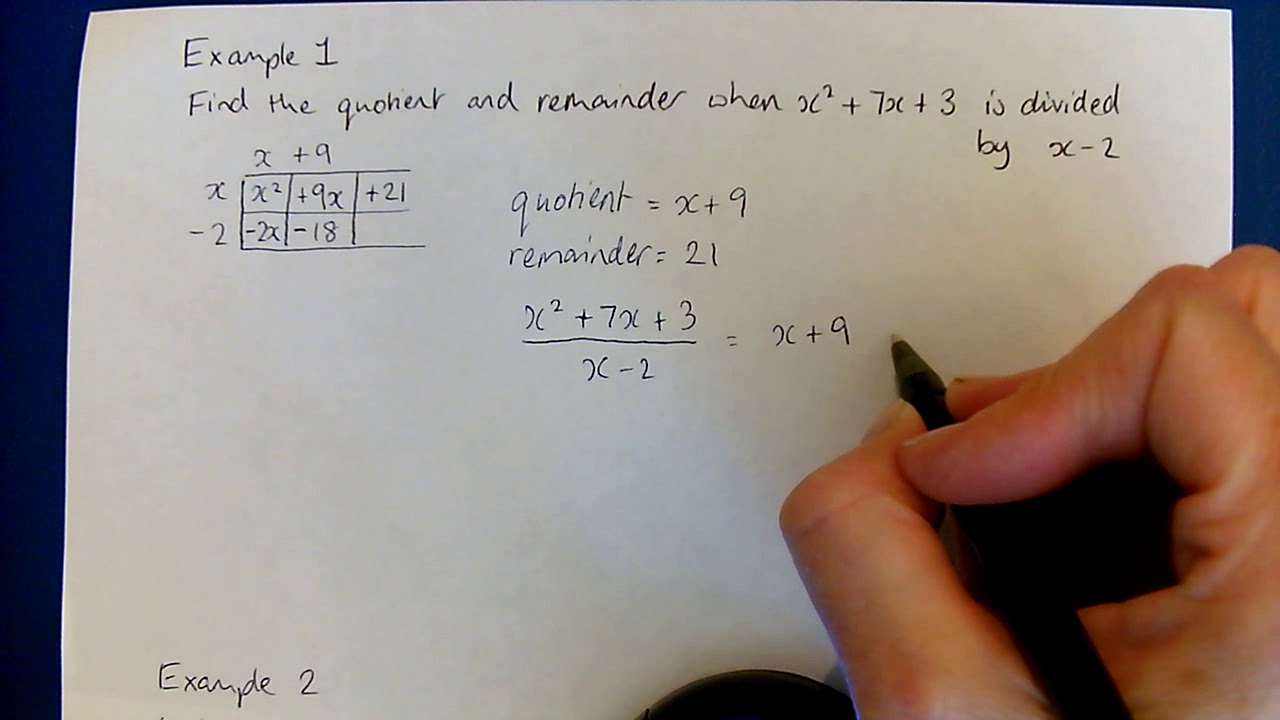 Example 1
Find the quotient and remainder when x² + 7x + 3 is divided
by x - 2
x + 9
x x² +9x +21
-2 -2x -18
quotient = x + 9
remainder = 21
x² + 7x + 3
x - 2
= x + 9
Example 2